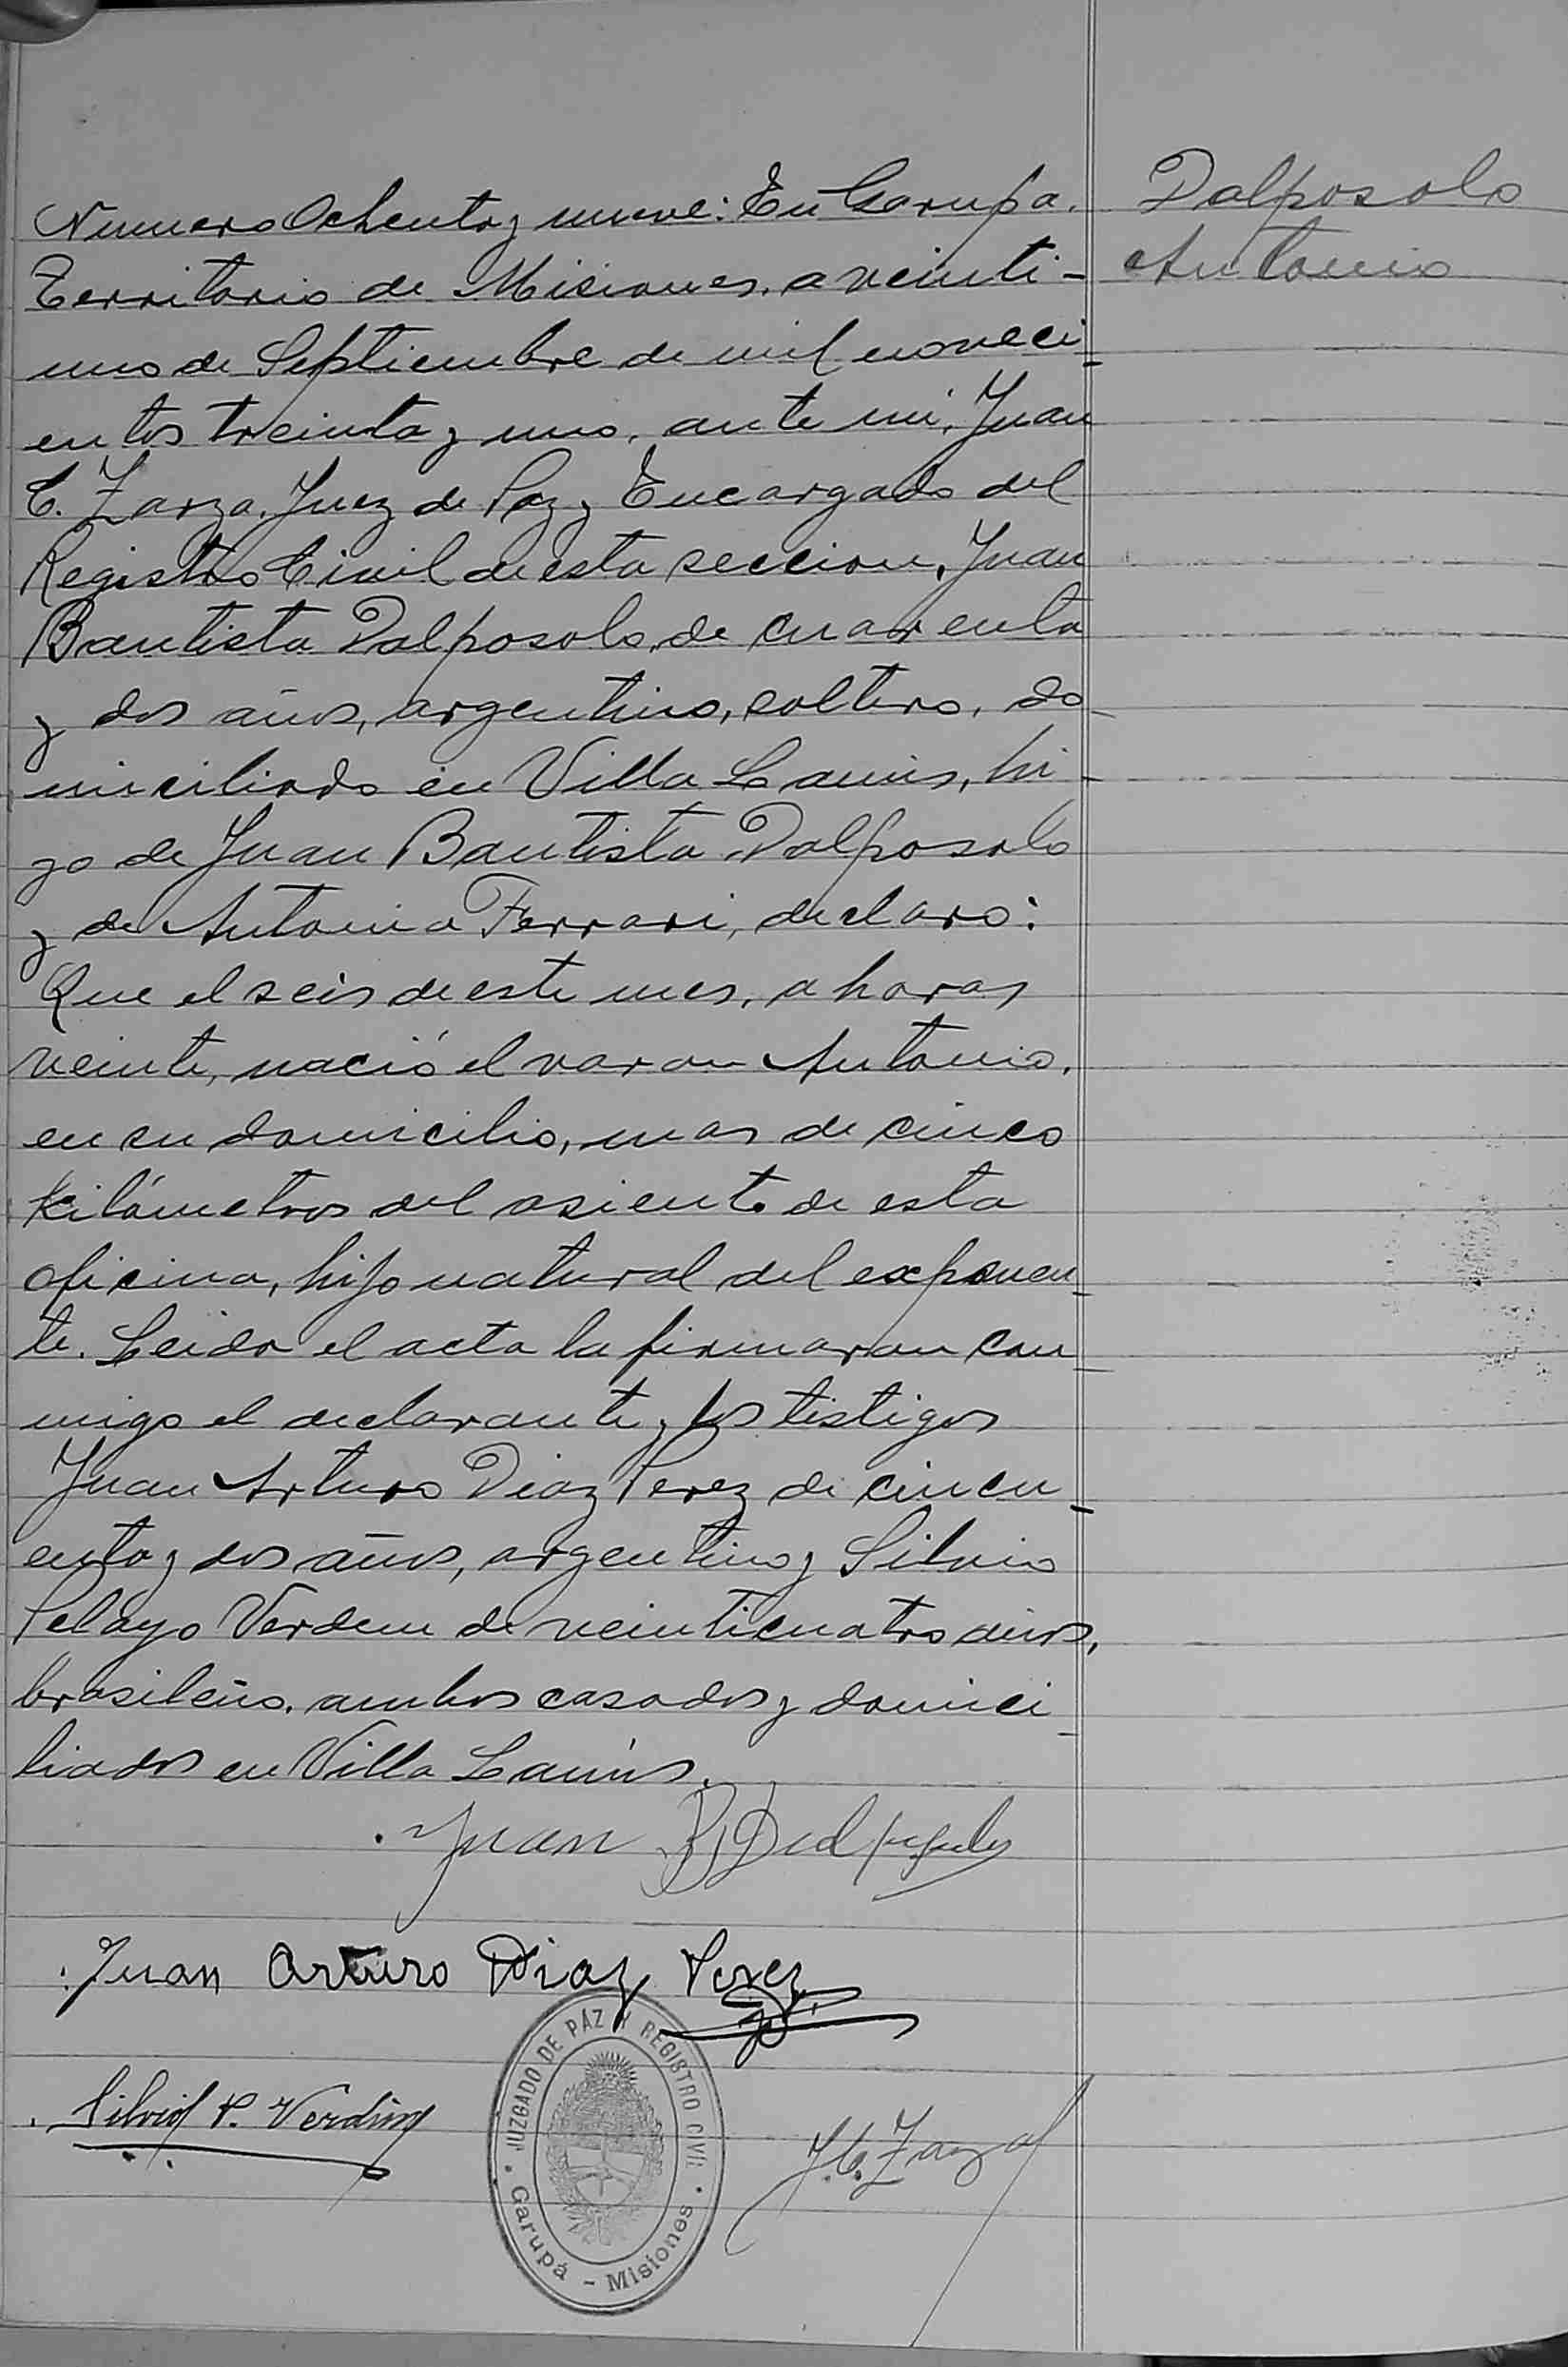 Numero Ochenta y nueve: En Garupa.
Territorio de Misiones, a veinti-
uno de Septiembre de mil noveci-
entos treinta y uno, ante mi, Juan
C. Zarza, Juez de Paz y Encargado del
Registro Civil de esta seccion, Juan
Bautista Dalposolo, de cuarenta
y dos años, argentino, soltero, do-
miciliado en Villa Lanús, hi-
jo de Juan Bautista Dalposolo
y de Antonia Ferrari, declaro:
Que el seis de este mes, a horas
veinte, nació el varon Antonio,
en su domicilio, mas de cinco
kilómetros del asiento de esta
oficina, hijo natural del exponen-
te. Leida el acta la firmaron con-
migo el declarante y los testigos
Juan Arturo Diaz Perez de cincu-
enta y dos años, argentino y Silvio
Pelayo Verdun de veinticuatro años,
brasileño, ambos casados y domici-
liados en Villa Lanús.
Juan B Dalposolo
Juan Arturo Diaz Perez
Silvio P. Verdun
J. C. Zarza
JUZGADO DE PAZ Y REGISTRO CIVIL
Garupá - Misiones
Dalposolo
Antonio